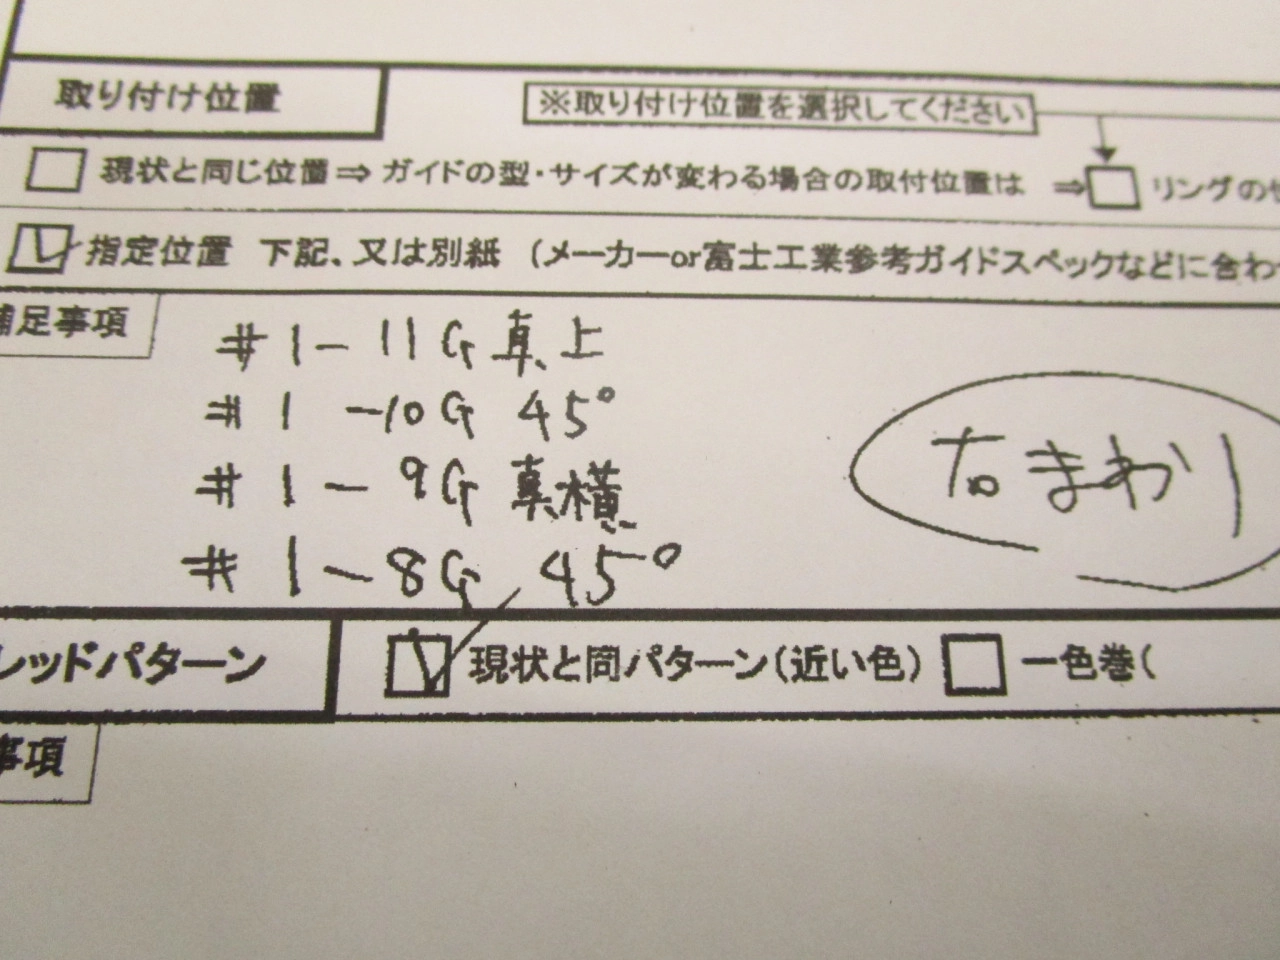 取り付け位置
※取り付け位置を選択してください
現状と同じ位置⇒ ガイドの型・サイズが変わる場合の取付位置は ⇒ リングの
指定位置 下記、又は別紙 (メーカーor富士工業参考ガイドスペックなどに合わ
補足事項
#1-11G 真上
#1-10G 45°
#1-9G 真横
#1-8G 45°
右まわり
レッドパターン
現状と同パターン(近い色)
一色巻(
事項